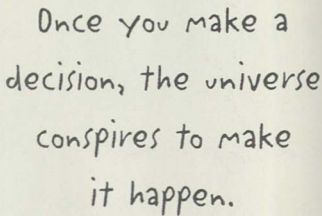 Once you make a
decision, the universe
conspires to make
it happen.